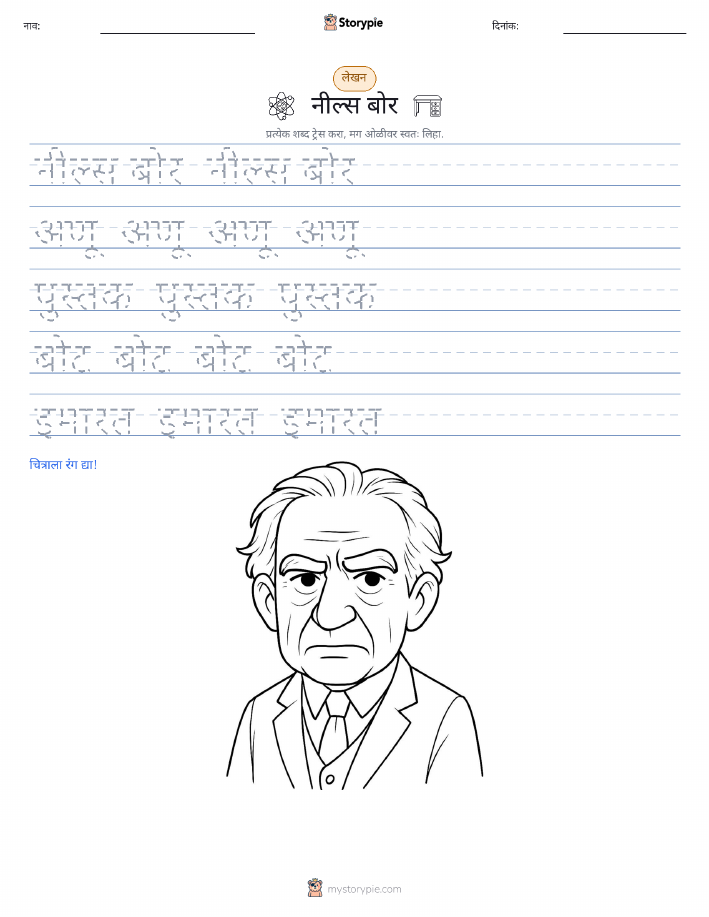 नाव:
Storypie
दिनांक:
लेखन
नील्स बोर
प्रत्येक शब्द ट्रेस करा, मग ओळीवर स्वतः लिहा.
नील्स बोर नील्स बोर
अणू अणू अणू अणू
पुस्तक पुस्तक पुस्तक
बोट बोट बोट बोट
इमारत इमारत इमारत
चित्राला रंग द्या!
mystorypie.com